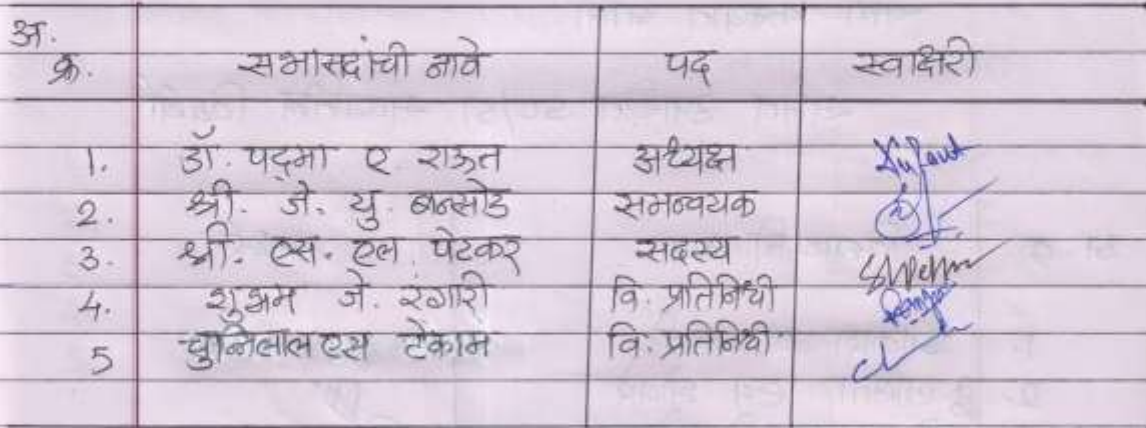 अ.
क्र. सभासदांची नावे पद स्वाक्षिरी
1. डॉ. पद्मा ए. राऊत अध्यक्ष
2. श्री. जे. यु. बन्सोडे समन्वयक
3. श्री. एस. एल. पेटकर सदस्य
4. शुभम जे. रंगारी वि. प्रतिनिधी
5 चुनिलाल एस टेकाम वि. प्रतिनिधी